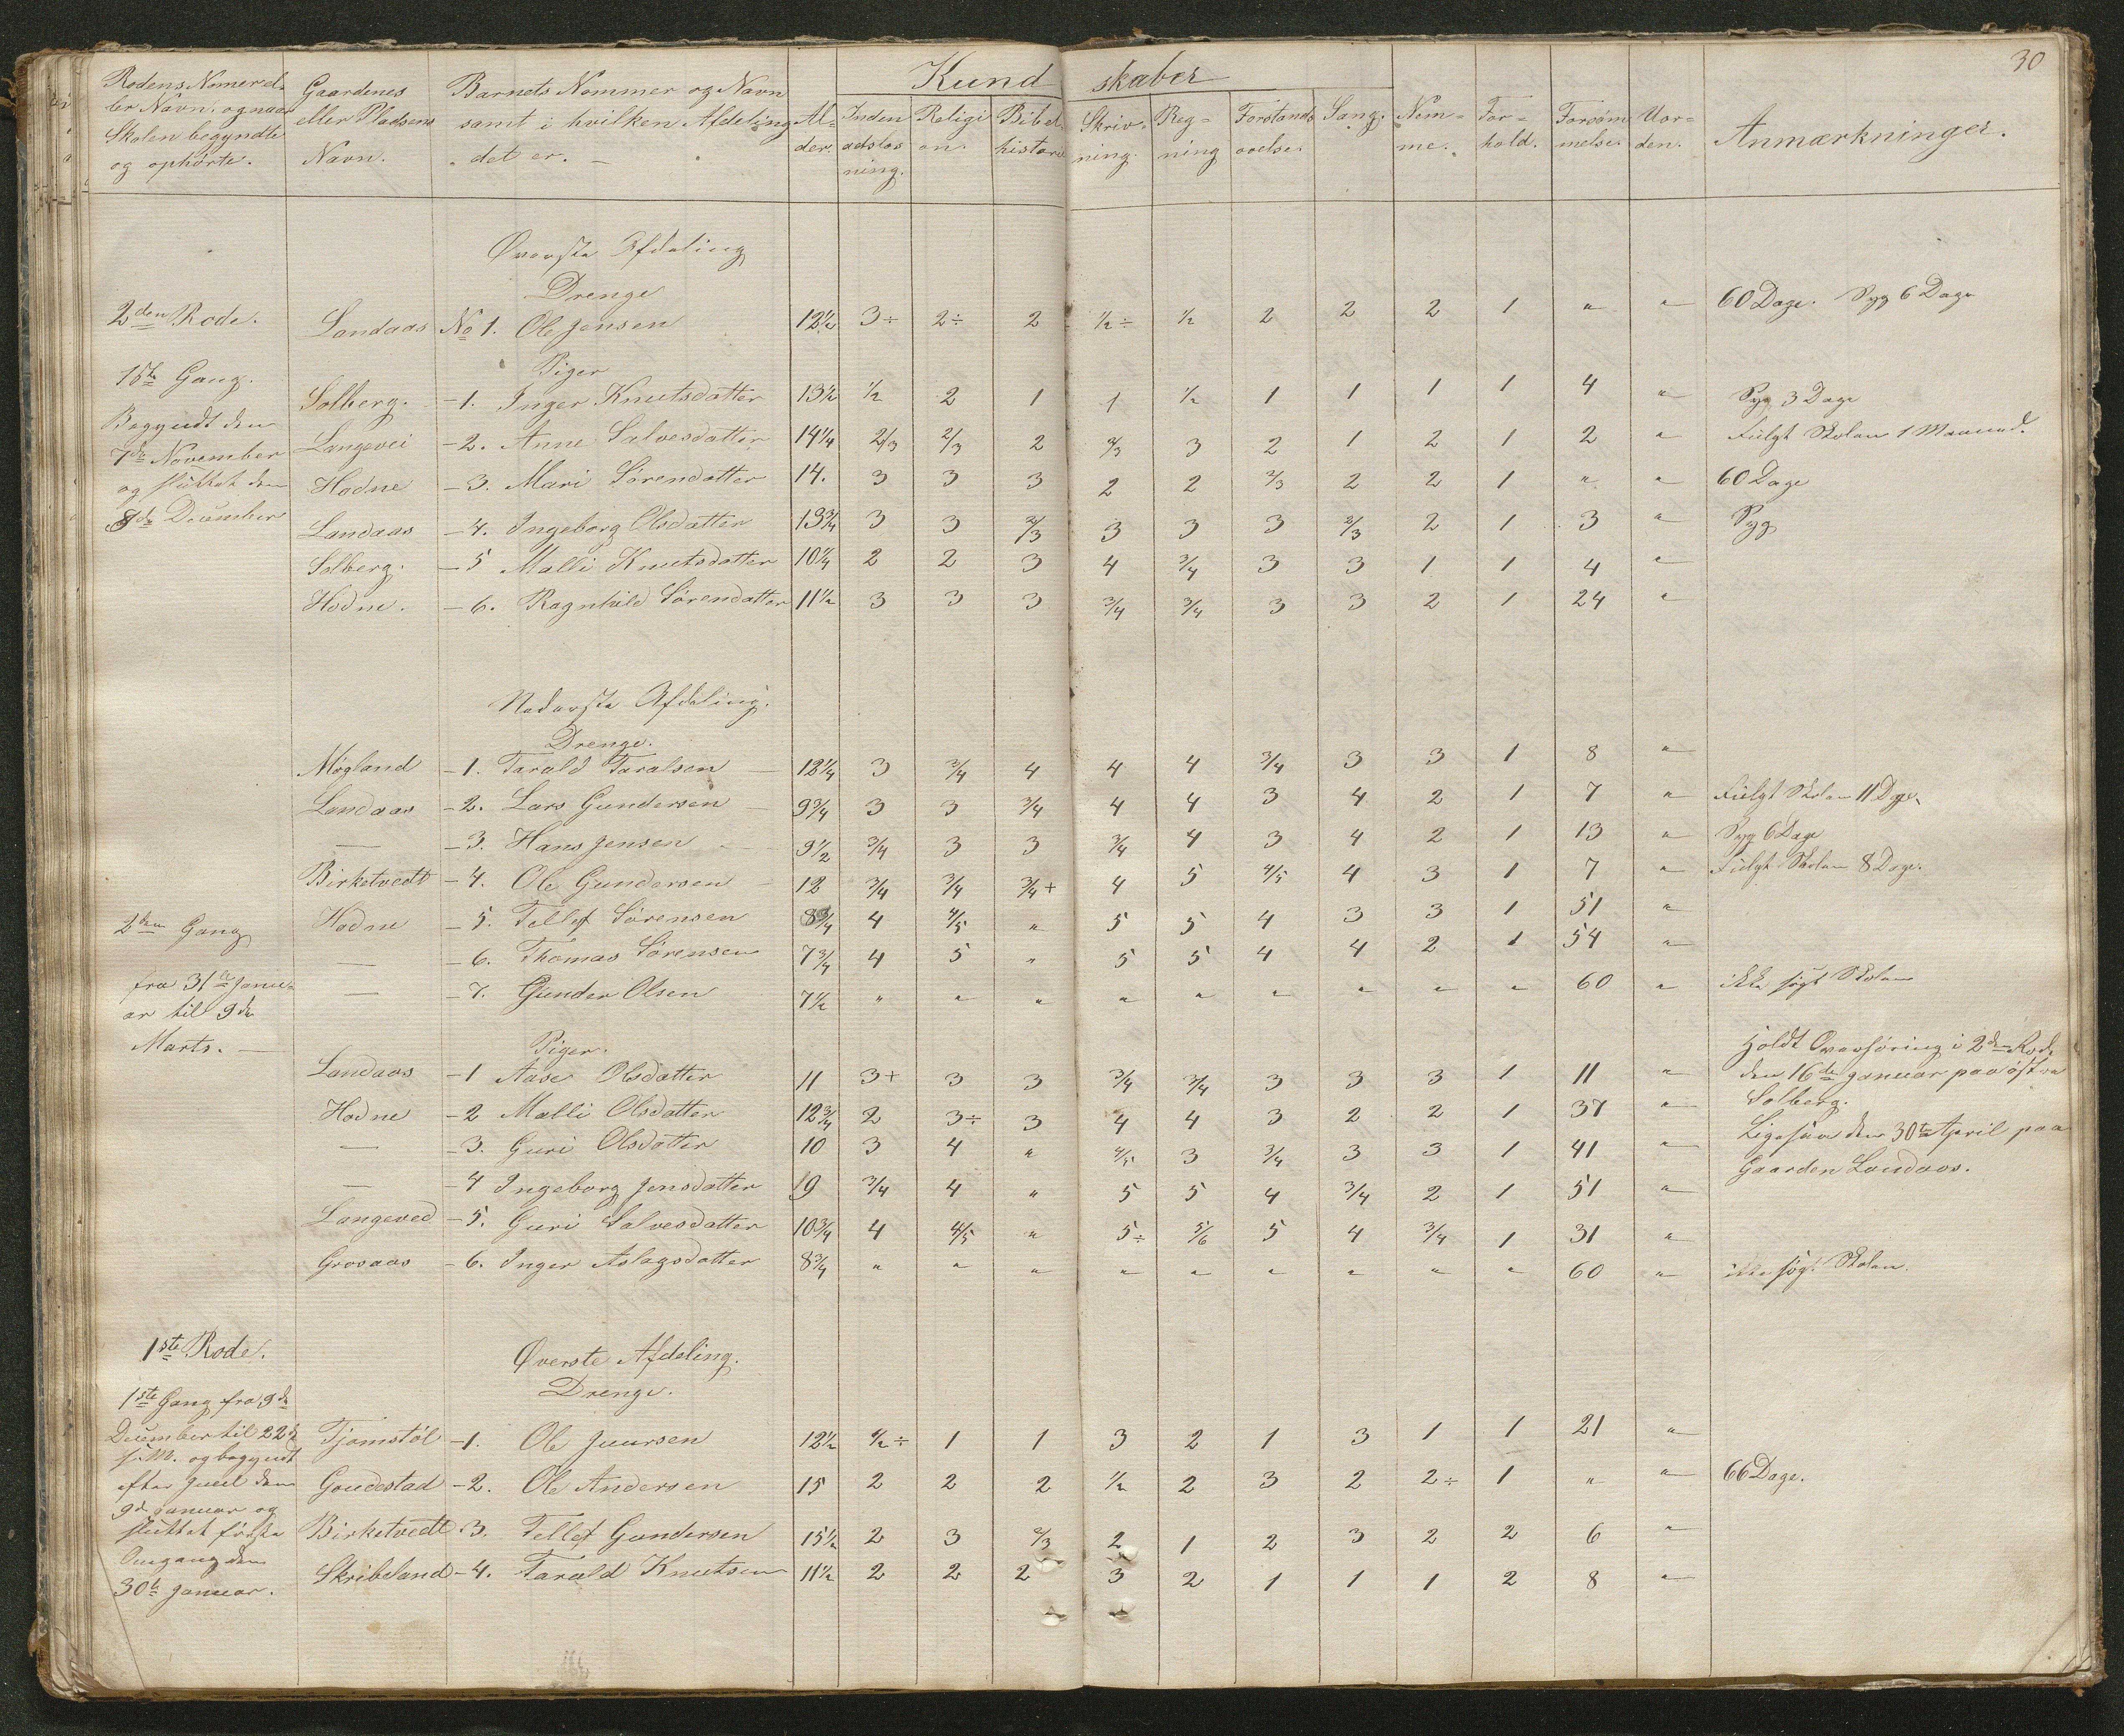 30
Rodens Nomer el- Gaardenes Barnets Nommer og Navn Al- Kund skaber
ler Navn, og naar eller Pladsens samt i hvilken Afdeling der. Inden Religi Bibel Skriv- Reg- Forstands Sang. Nem- For- Forsöm Uor- Anmærkninger.
Skolen begyndte Navn. det er. adslæs on. historie ning. ning övelse. me. hold. melse. den.
og ophörte. ning.
Øverste Afdeling
Drenge
2den Rode. Landaas No 1. Ole Jensen 12½ 3÷ 2÷ 2 ½÷ ½ 2 2 2 1 " " 60 Dage. Syg 6 Dage
1ste Gang. Piger
Solberg. -1. Inger Knutsdatter 13½ ½ 2 1 1 ½ 1 1 1 1 4 " Syg 3 Dage
Begyndt den Langevei -2. Anne Salvesdatter 14¼ 2/3 2/3 2 2/3 3 2 1 2 1 2 " Fulgt Skolen 1 Maaned.
7de November
og sluttet den Hodne -3. Mari Sörensdatter 14. 3 3 3 2 2 2/3 2 2 1 " " 60 Dage
8de December Landaas -4. Ingeborg Olsdatter 13¾ 3 3 2/3 3 3 3 2/3 2 1 3 " Syg
Solberg. -5 Malli Knutsdatter 10¼ 2 2 3 4 ¾ 3 3 1 1 4 "
Hodne. -6. Ragnhild Sörensdatter 11½ 3 3 3 ¾ ¾ 3 3 2 1 24 "
Nederste Afdeling.
Drenge.
Mögland -1. Tarald Taralsen 12¼ 3 ¾ 4 4 4 ¾ 3 3 1 8 "
Landaas -2. Lars Gundersen 9¾ 3 3 ¾ 4 4 3 4 2 1 7 " Fulgt Skolen 11 Dage.
— -3. Hans Jensen 9½ ¾ 3 3 ¾ 4 3 4 2 1 13 " Syg 6 Dage
Birketvedt -4. Ole Gundersen 12 ¾ ¾ ¾+ 4 5 4/5 4 3 1 7 " Fulgt Skolen 8 Dage.
2den Gang Hodne -5. Tellef Sörensen 8¾ 4 4/5 " 5 5 4 3 3 1 51 "
— -6. Thomas Sörensen 7¾ 4 5 " 5 5 4 4 2 1 54 "
fra 31te Janu- — -7. Gunder Olsen 7½ " " " " " " " " " 60 " ikke sögt Skolen
ar til 9de
Marts. — Piger.
Landaas -1 Aase Olsdatter 11 3+ 3 3 ¾ ¾ 3 3 3 1 11 " Holdt Overhöring i 2den Rode
den 16de Januar paa östre
Hodne -2 Malli Olsdatter 12¾ 2 3÷ 3 4 4 3 2 2 1 37 " Solberg.
— -3. Guri Olsdatter 10 3 4 " 4/5 3 ¾ 3 3 1 41 " Ligesaa den 30te April paa
Gaarden Landaas.
— -4 Ingeborg Jensdatter 19 ¾ 4 " 5 5 4 ¾ 2 1 51 "
Langeved -5. Guri Salvesdatter 10¾ 4 4/5 " 5÷ 5/6 5 4 ¾ 1 31 "
Grosaas -6. Inger Aslagsdatter 8¾ " " " " " " " " " 60 " ikke sögt Skolen.
1ste Rode. Øverste Afdeling.
Drenge.
1ste Gang fra 9de
December til 22de Tjomstöl -1. Ole Juursen 12½ ½÷ 1 1 3 2 1 3 1 1 21 "
s. M. og begyndt
efter Juul den Goudestad -2. Ole Andersen 15 2 2 2 ½ 2 3 2 2÷ 1 " " 66 Dage.
9de Januar og
sluttet förste Birketvedt -3. Tellef Gundersen 15½ 2 3 2/3 2 1 2 3 2 2 6 "
Omgang den
30te Januar. Skribeland -4. Tarald Knutsen 11½ 2 2 2 3 2 1 1 1 2 8 "